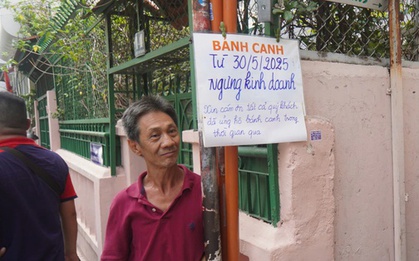 BANH CANH
Từ 30/5/2025
ngưng kinh doanh
Xin cảm ơn tất cả quý khách
đã ủng hộ bánh canh trong
thời gian qua